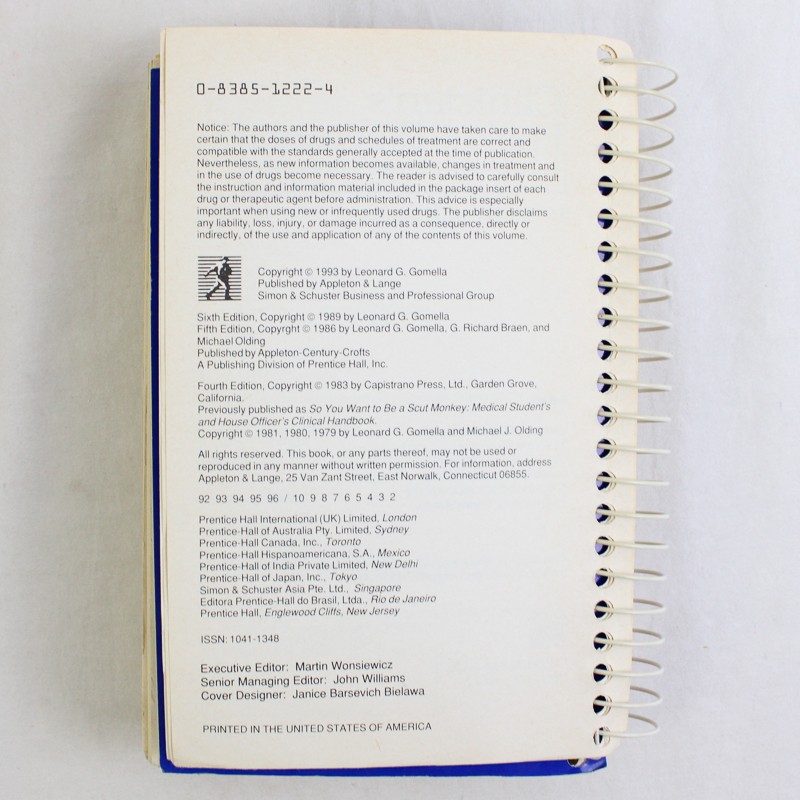 0-8385-1222-4
Notice: The authors and the publisher of this volume have taken care to make
certain that the doses of drugs and schedules of treatment are correct and
compatible with the standards generally accepted at the time of publication.
Nevertheless, as new information becomes available, changes in treatment and
in the use of drugs become necessary. The reader is advised to carefully consult
the instruction and information material included in the package insert of each
drug or therapeutic agent before administration. This advice is especially
important when using new or infrequently used drugs. The publisher disclaims
any liability, loss, injury, or damage incurred as a consequence, directly or
indirectly, of the use and application of any of the contents of this volume.
Copyright © 1993 by Leonard G. Gomella
Published by Appleton & Lange
Simon & Schuster Business and Professional Group
Sixth Edition, Copyright © 1989 by Leonard G. Gomella
Fifth Edition, Copyrght © 1986 by Leonard G. Gomella, G. Richard Braen, and
Michael Olding
Published by Appleton-Century-Crofts
A Publishing Division of Prentice Hall, Inc.
Fourth Edition, Copyright © 1983 by Capistrano Press, Ltd., Garden Grove,
California.
Previously published as So You Want to Be a Scut Monkey: Medical Student's
and House Officer's Clinical Handbook.
Copyright © 1981, 1980, 1979 by Leonard G. Gomella and Michael J. Olding
All rights reserved. This book, or any parts thereof, may not be used or
reproduced in any manner without written permission. For information, address
Appleton & Lange, 25 Van Zant Street, East Norwalk, Connecticut 06855.
92 93 94 95 96 / 10 9 8 7 6 5 4 3 2
Prentice Hall International (UK) Limited, London
Prentice-Hall of Australia Pty. Limited, Sydney
Prentice-Hall Canada, Inc., Toronto
Prentice-Hall Hispanoamericana, S.A., Mexico
Prentice-Hall of India Private Limited, New Delhi
Prentice-Hall of Japan, Inc., Tokyo
Simon & Schuster Asia Pte. Ltd., Singapore
Editora Prentice-Hall do Brasil, Ltda., Rio de Janeiro
Prentice Hall, Englewood Cliffs, New Jersey
ISSN: 1041-1348
Executive Editor: Martin Wonsiewicz
Senior Managing Editor: John Williams
Cover Designer: Janice Barsevich Bielawa
PRINTED IN THE UNITED STATES OF AMERICA